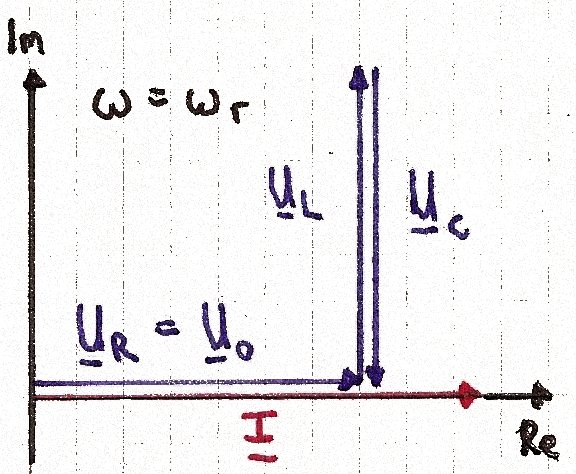 Im
ω = ωr
U̲L
U̲C
U̲R = U̲0
I̲
Re